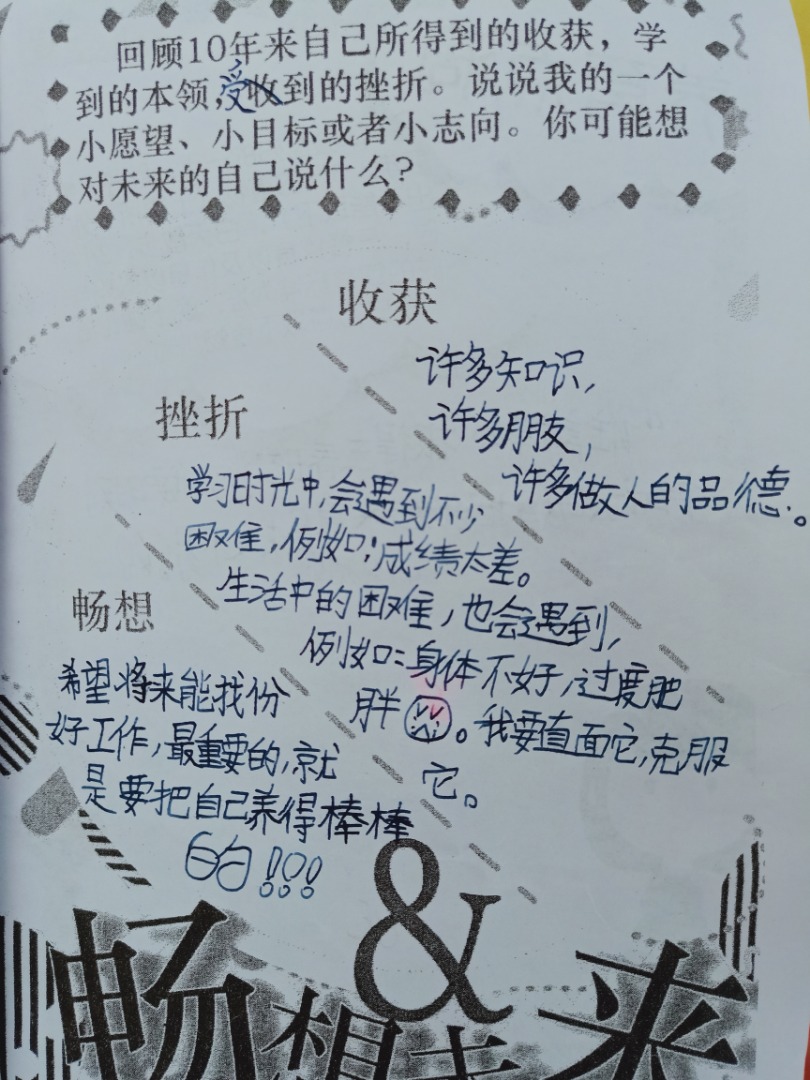 回顾10年来自己所得到的收获，学
到的本领，受到的挫折。说说我的一个
小愿望、小目标或者小志向。你可能想
对未来的自己说什么？
收获
许多知识，
许多朋友，
许多做人的品德。
挫折
学习时光中，会遇到不少
困难，例如：成绩太差。
生活中的困难，也会遇到，
例如：身体不好，过度肥
胖。我要直面它，克服
它。
畅想
希望将来能找份
好工作，最重要的，就
是要把自己养得棒棒
的!!!
&
畅想未来